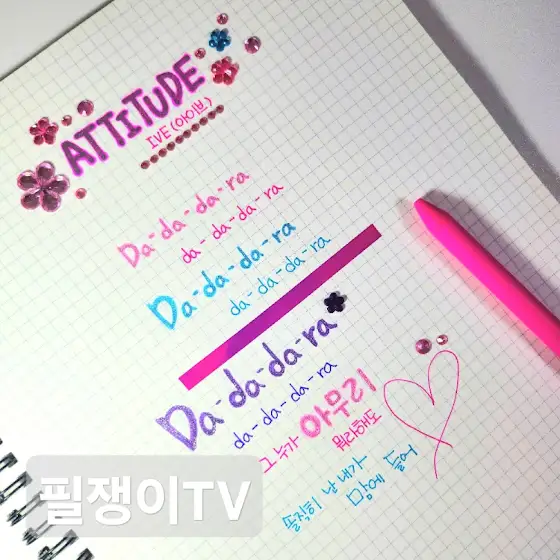 ATTITUDE
IVE (아이브)
Da-da-da-ra
da-da-da-ra
Da-da-da-ra
da-da-da-ra
Da-da-da-ra
da-da-da-ra
그 누가 아무리 뭐라해도
솔직히 난 내가 맘에 들어
필쟁이TV